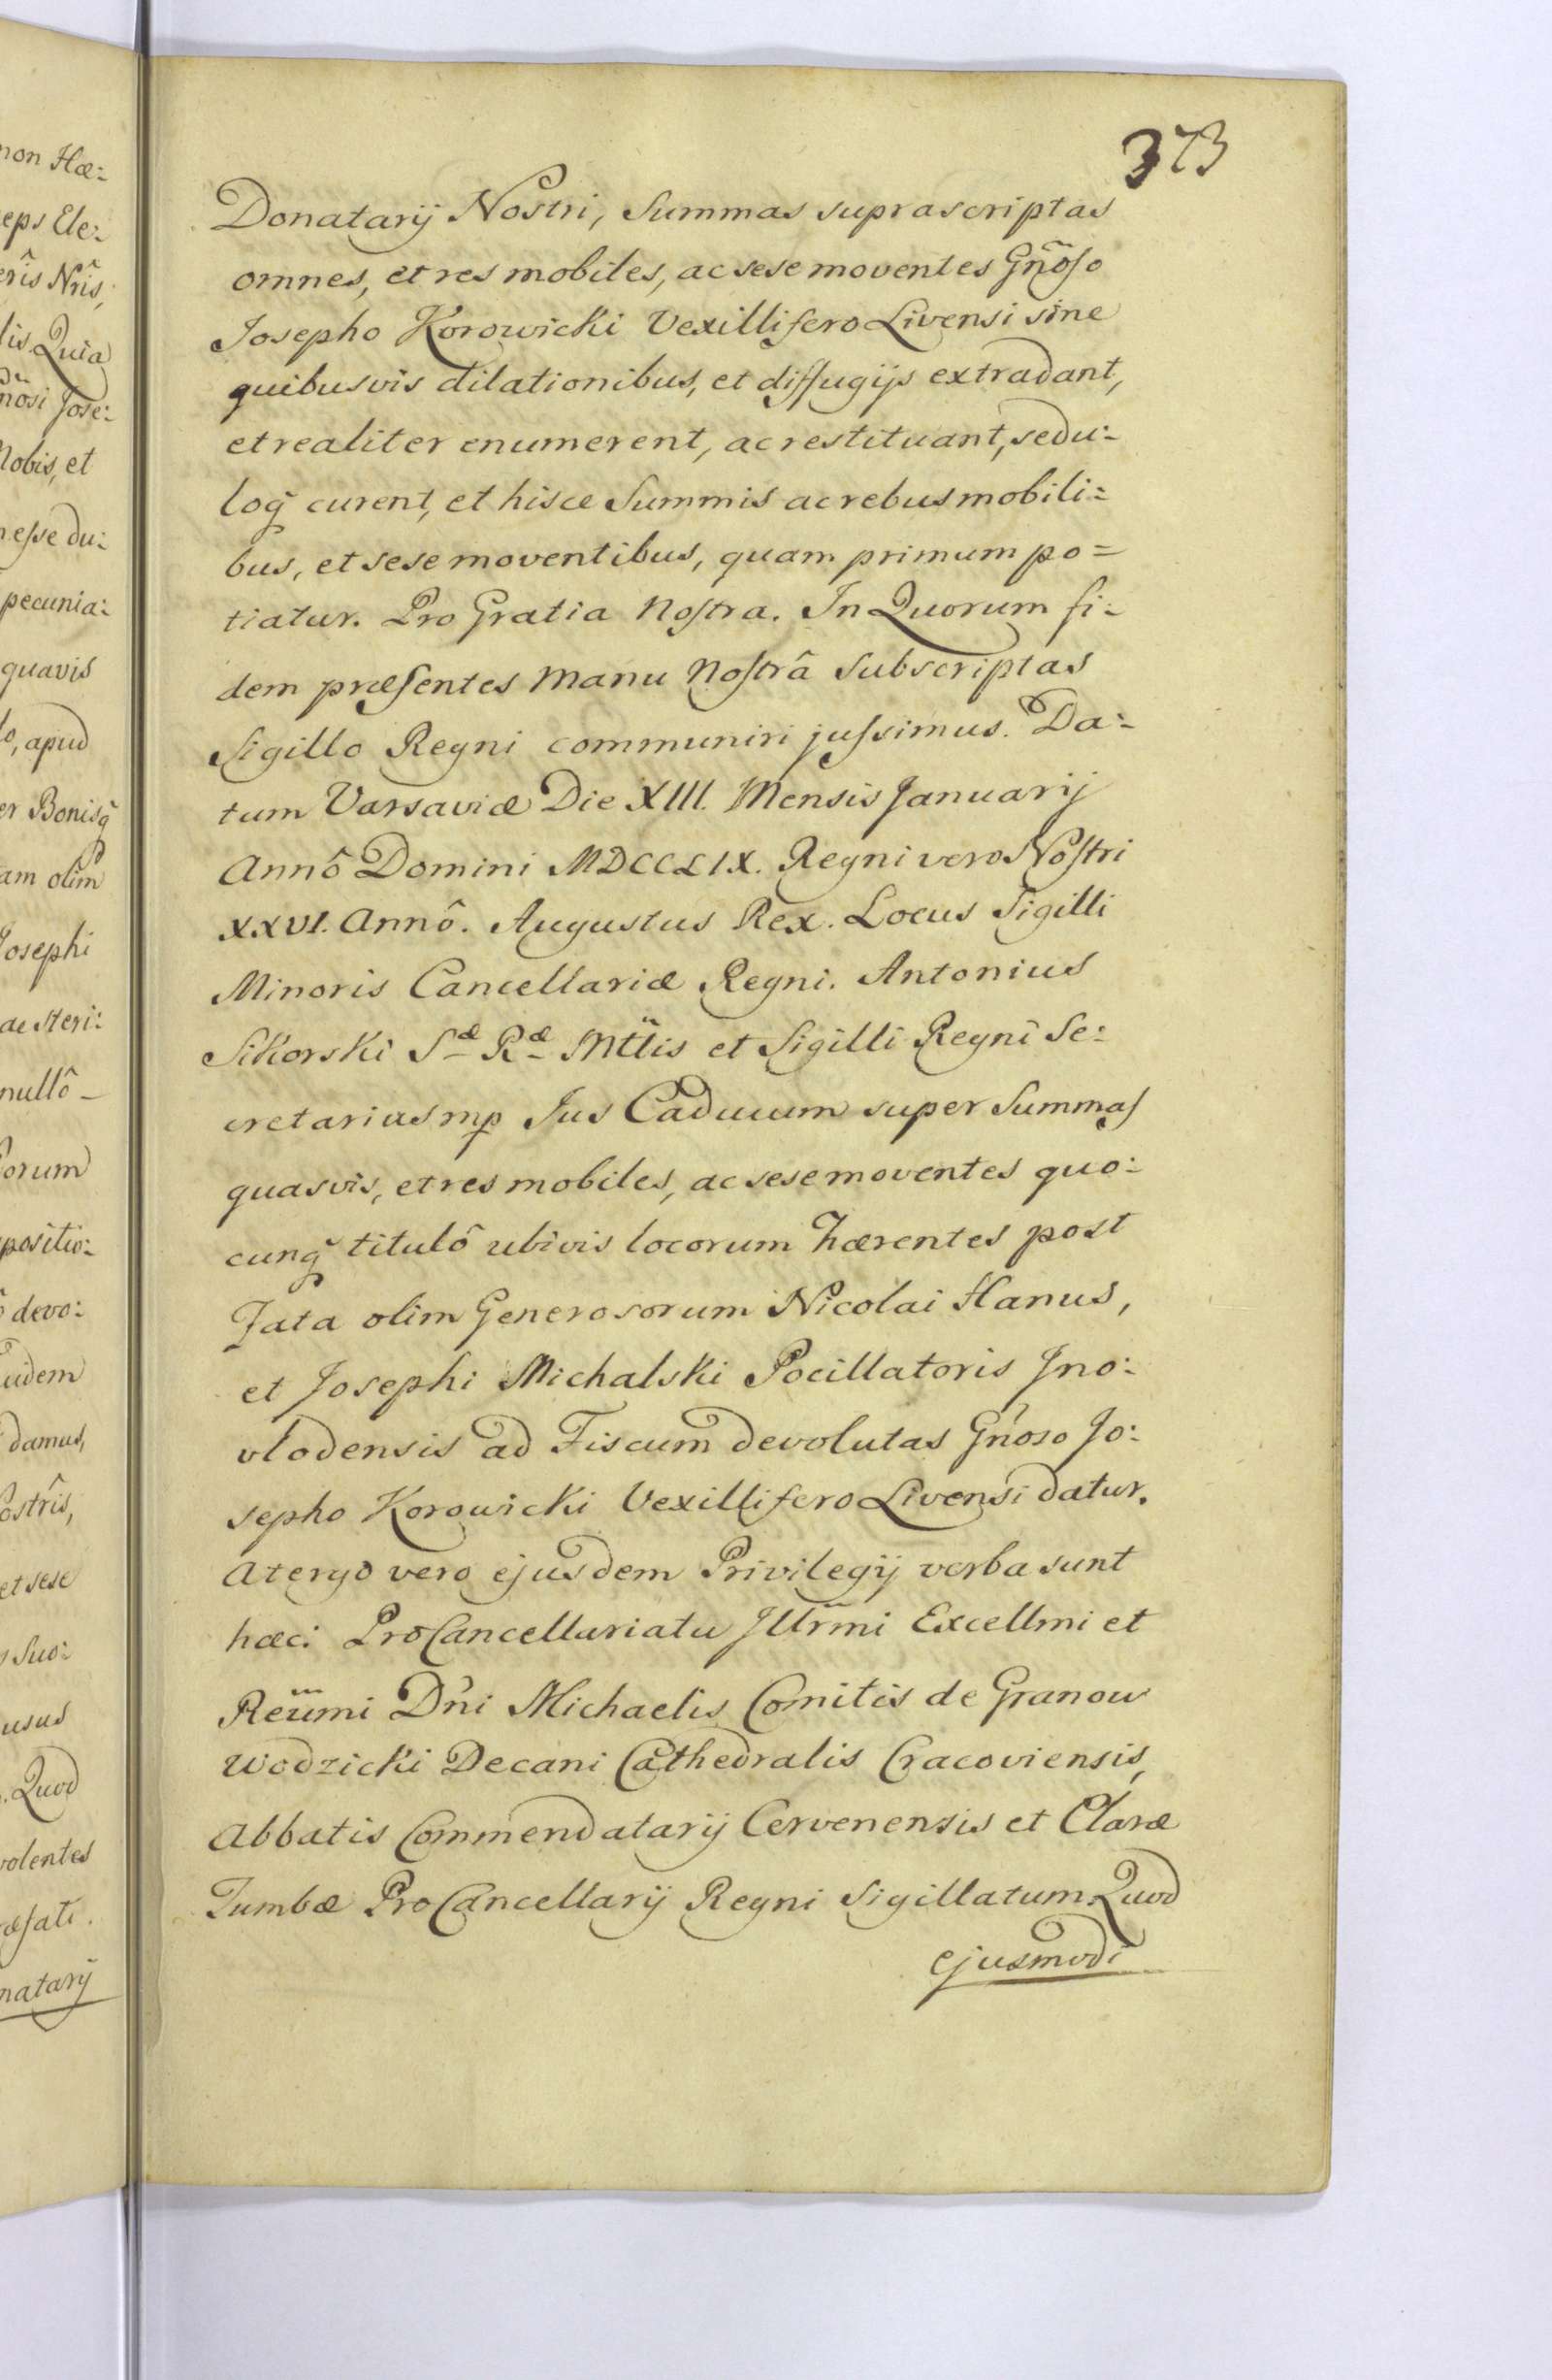 373
Donatarij Nostri, Summas suprascriptas
omnes, et res mobiles, ac sese moventes Gñoso
Josepho Korowicki Vexillifero Livensi sine
quibusvis dilationibus, et diffugijs extradant,
et realiter enumerent, ac restituant, sedu:
loq̃ curent, et hisce Summis ac rebus mobili:
bus, et sese moventibus, quam primum po=
tiatur. Pro Gratia Nostra. In Quorum fi:
dem præsentes Manu Nostrâ Subscriptas
Sigillo Regni communiri jussimus. Da:
tum Varsaviæ Die XIII. Mensis Januarij
Annô Domini MDCCLIX. Regni vero Nostri
XXVI. Annô. Augustus Rex. Locus Sigilli
Minoris Cancellariæ Regni. Antonius
Sikorski Sæ Ræ Mttis et Sigilli Regni Se:
cretarius mp Jus Caducum super Summas
quasvis, et res mobiles, ac sese moventes quo:
cunq̃ titulô ubivis locorum hærentes post
Fata olim Generosorum Nicolai Hanus,
et Josephi Michalski Pocillatoris Jno:
vlodensis ad Fiscum devolutas Gñoso Jo:
sepho Korowicki Vexillifero Livensi datur.
A tergo vero ejusdem Privilegij verba sunt
hæc: ProCancellariatu Jllrmi Excellmi et
Reümi Dñi Michaelis Comitis de Granow
Wodzicki Decani Cathedralis Cracoviensis,
Abbatis Commendatarij Cervenensis et Claræ
Tumbæ ProCancellarij Regni Sigillatum. Quod
ejusmodi
non Hæ:
eps Ele:
eris Nris,
lis. Quia
nosi Jose:
Nobis, et
esse du:
pecunia:
quavis
apud
er Bonisq̃
am olim
Josephi
ac steri:
nullô
orum
positio:
devo:
uidem
damus,
ostris,
et sese
Suo:
usus
Quod
volentes
æsati.
natarij